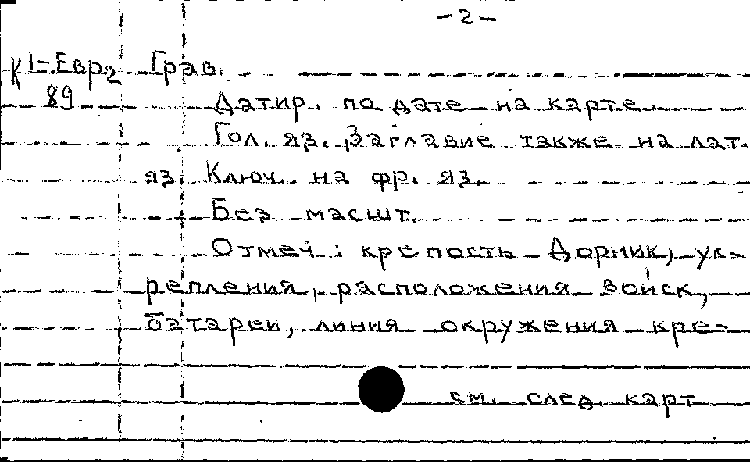 -2-
К 1-Евр2 Грав.
89 Датир. по дате на карте.
Гол. яз. Заглавие также на лат.
яз. Ключ на фр. яз.
Без масшт.
Отмеч.: крепость Дорник, ук-
репления, расположения войск,
батареи, линия окружения кре-
см. след. карт